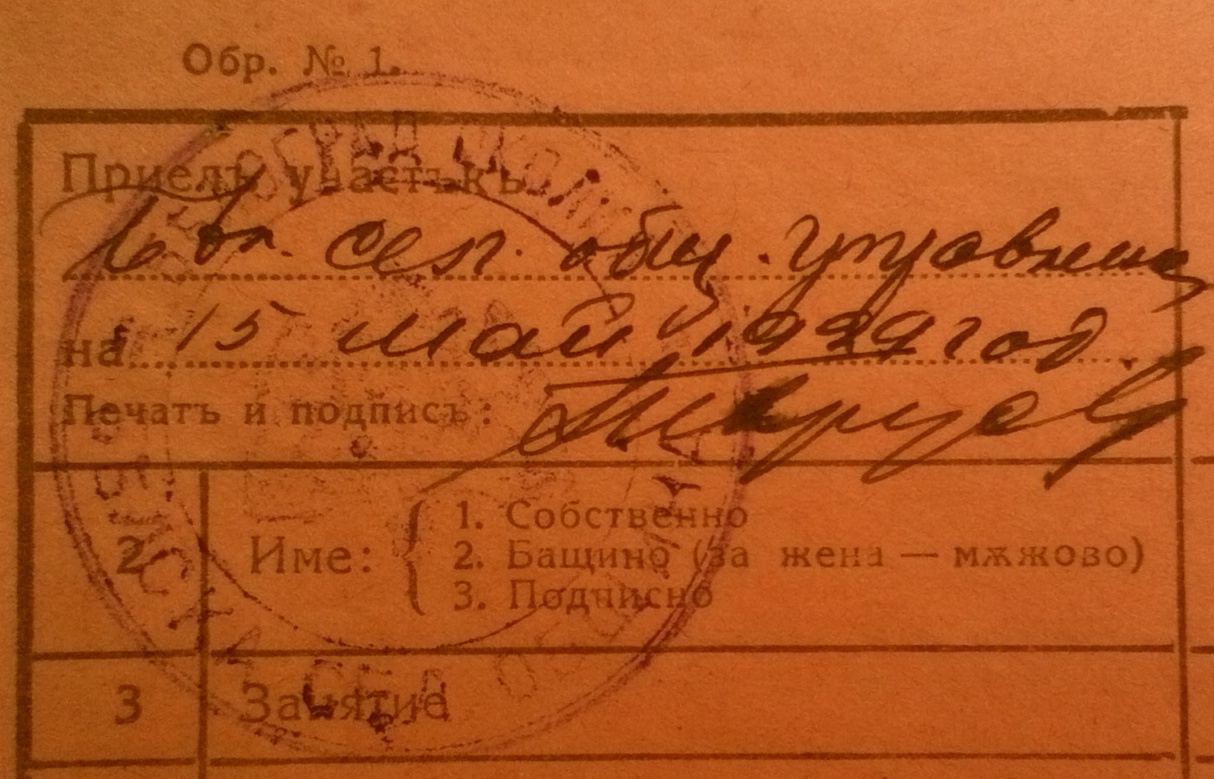 Обр. № 1.
Приелъ участъкъ
сел. общ. управление
на 15 май 1929 год.
Печатъ и подписъ:
2 Име:
1. Собствено
2. Бащино (за жена — мѫжово)
3. Подписно
3 Занятие